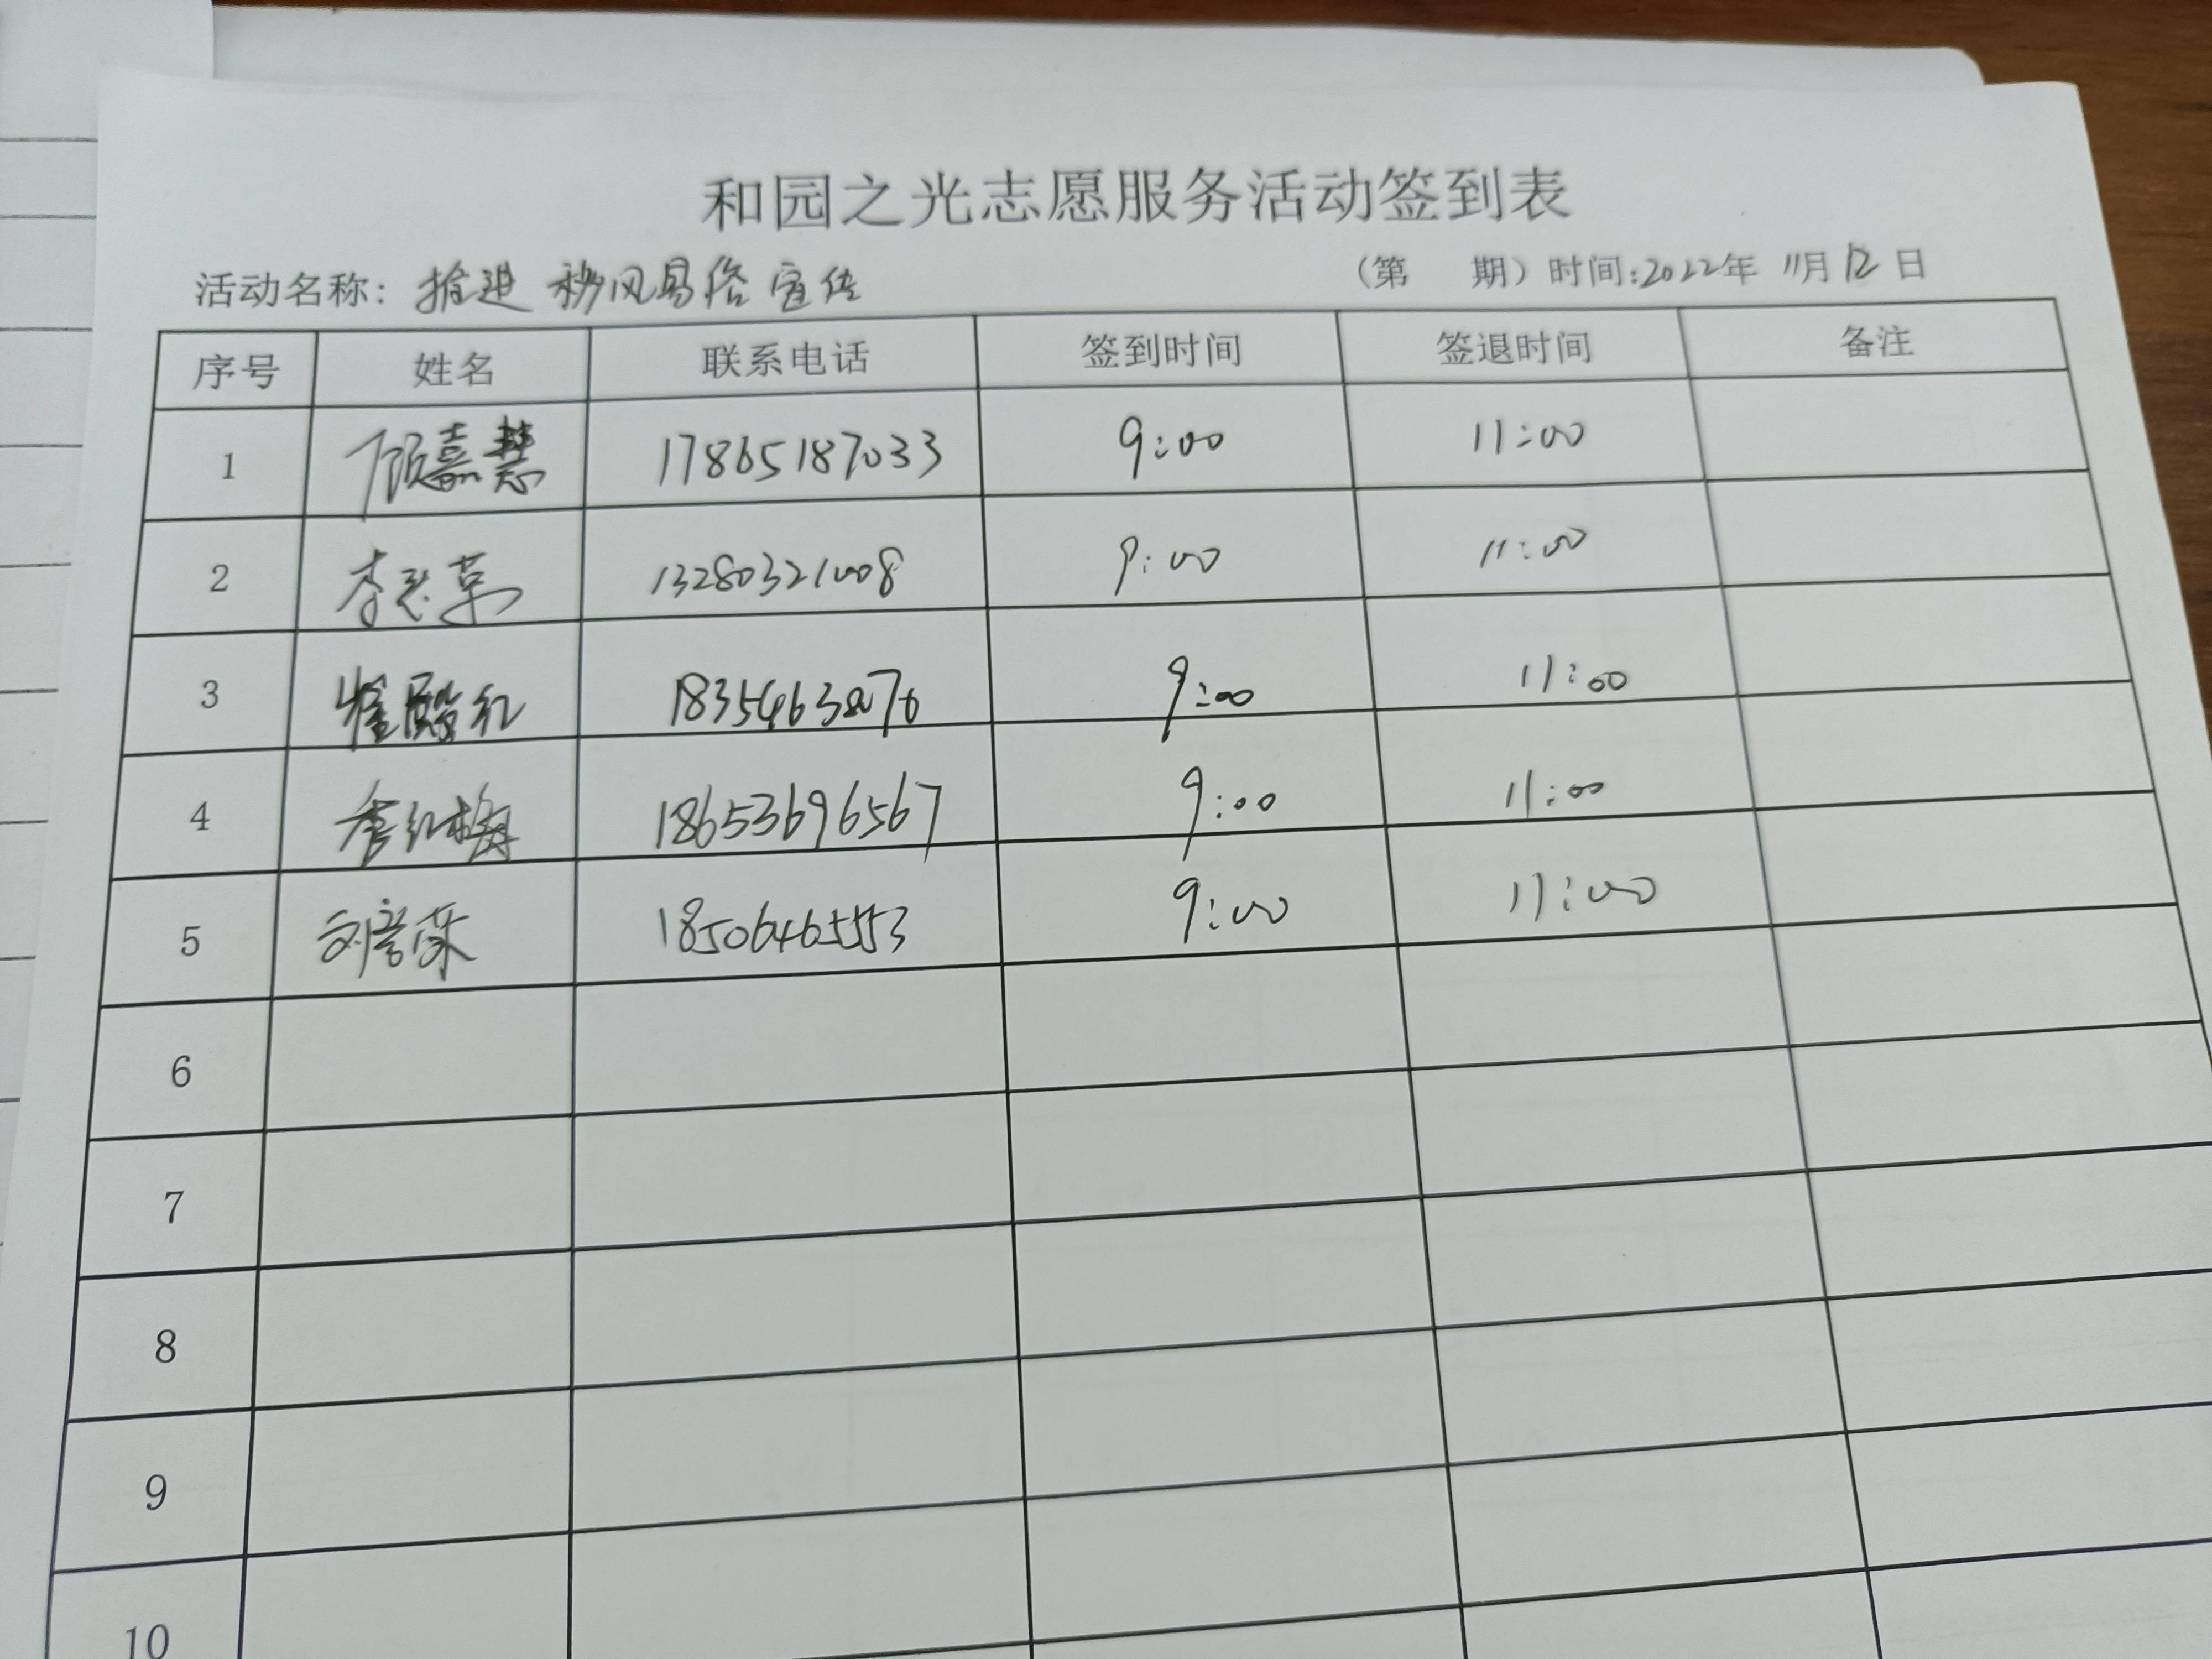 和园之光志愿服务活动签到表
活动名称：推进 移风易俗宣传 （第 期）时间：2022年 11月 12日
序号 姓名 联系电话 签到时间 签退时间 备注
1 顾嘉慧 17865187033 9:00 11:00
2 李志革 13280321008 9:00 11:00
3 9:00 11:00
4 李红梅 18653696567 9:00 11:00
5 刘彦荣 18506465553 9:00 11:00
6
7
8
9
10